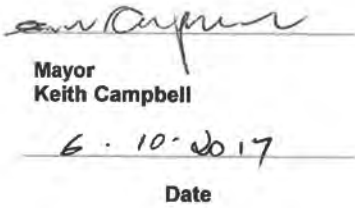 Mayor
Keith Campbell
6 . 10 - 2017
Date